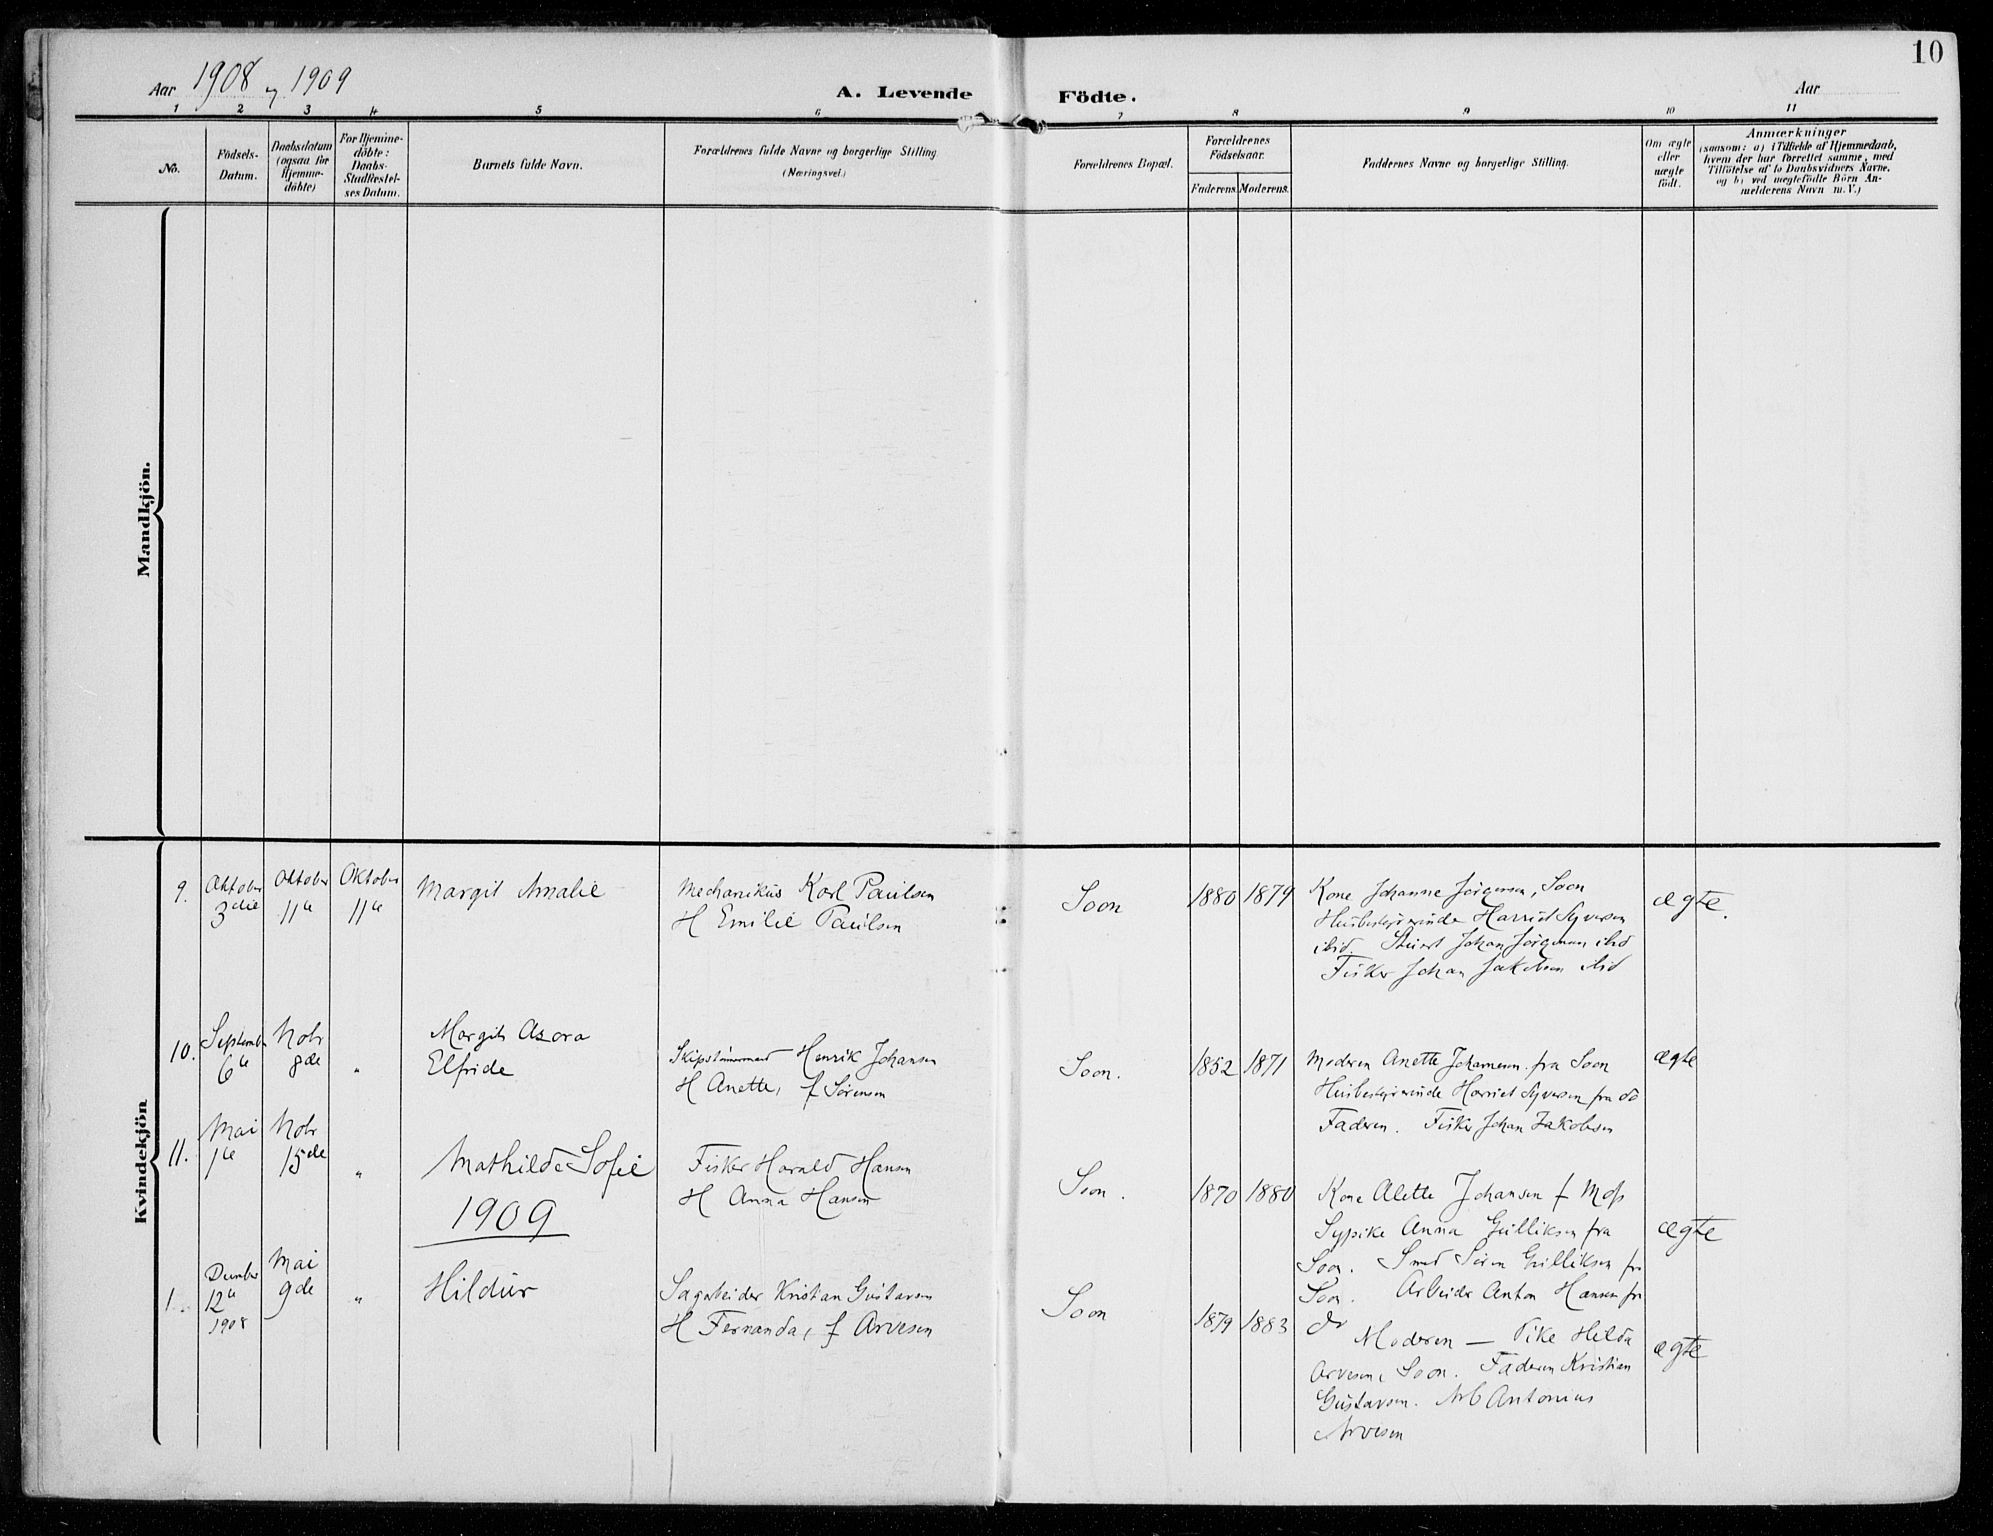 Aar 1908 og 1909
A. Levende Födte.
Aar
10
1 2 3 4 5 6 7 8 9 10 11
No.
Födsels-
Datum.
Daabsdatum
(ogsaa for
Hjemme-
döbte)
For Hjemme-
döbte:
Daabs-
Stadfæstel-
ses Datum.
Barnets fulde Navn.
Forældrenes fulde Navne og borgerlige Stilling
(Næringsvei.)
Forældrenes Bopæl.
Forældrenes
Födselsaar.
Faderens. Moderens.
Faddernes Navne og borgerlige Stilling.
Om ægte
eller
uægte
födt.
Anmærkninger
(saasom: a) i Tilfælde af Hjemmedaab,
hvem der har forrettet samme, med
Tilföielse af to Daabsvidners Navne,
og b) ved uægtefödte Börn An-
melderens Navn m. V.)
Mandkjön.
Kvindekjön
9.
Oktober
3die
Oktober
11te
Oktober
11te
Margit Amalie
Mechanikus Karl Paulsen
H Emilie Paulsen
Soon
1880 1879
Kone Johanne Jörgensen, Soon
Husbestyrerinde Harriet Syversen
ibid. Johan Jörgensen ibid
Fisker Johan Jakobsen ibid
ægte.
10.
September
6te
Nobr
8de
"
Margit Azora
Elfride
Skipstömmermand Henrik Johansen
H Anette, f Sörensen
Soon.
1852 1871
Moderen Anette Johansen fra Soon
Husbestyrerinde Harriet Syversen fra do
Faderen. Fisker Johan Jakobsen
ægte
11.
Mai
1te
Nobr
15de
"
Mathilde Sofie
Fisker Harald Hansen
H Anna Hansen
Soon.
1870 1880
Kone Alette Johansen f Moss
Sypike Anna Gulliksen fra
Soon. Smed Sören Gulliksen fra
Soon. Arbeider Anton Hansen fra
do
ægte
1909
1.
December
12te
1908
Mai
9de
"
Hildur
Sagarbeider Kristian Gustavsen
H Fernanda, f Arvesen
Soon
1879 1883
Moderen — Pike Hilda
Arvesen, Soon. Faderen Kristian
Gustavsen. Arb Antonius
Arvesen
ægte